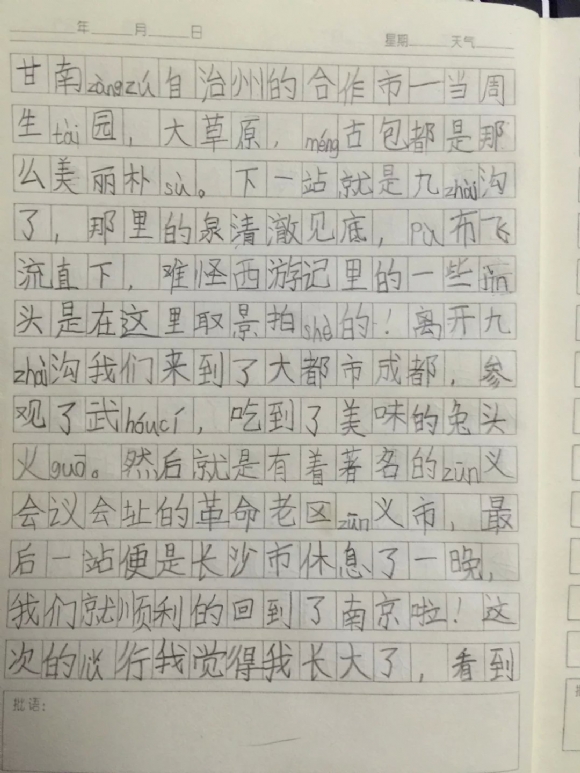 年 月 日
星期 天气
甘南zàngzú自治州的合作市一当周
生tài园，大草原，méng古包都是那
么美丽朴sù。下一站就是九zhài沟
了，那里的泉清澈见底，pù布飞
流直下，难怪西游记里的一些jìn
头是在这里取景拍shè的！离开九
zhài沟我们来到了大都市成都，参
观了武hóucí，吃到了美味的兔头
火guō。然后就是有着著名的zūn义
会议会址的革命老区zūn义市，最
后一站便是长沙市休息了一晚，
我们就顺利的回到了南京啦！这
次的旅行我觉得我长大了，看到
批语：